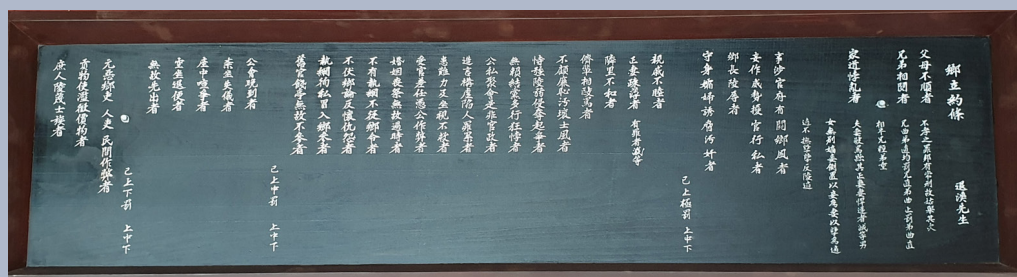 鄕立約條
退溪先生
父母不順者
不孝之罪邦有常刑故姑擧其次
兄弟相鬩者
兄曲弟直均罰兄直弟曲止罰弟曲直
相半兄輕弟重
家道悖亂者
夫妻敺罵黜其正妻妻悍逆者減等男
女無別嫡妻倒置以妾爲妻以孼爲適
適不撫孼孼反陵適
事涉官府有關鄕風者
妄作威勢擾官行私者
鄕長陵辱者
守身孀婦誘脅汚奸者
已上極罰 上中下
親戚不睦者
正妻疎薄者
有罪者減等
隣里不和者
儕輩相敺罵者
不顧廉恥汚壞士風者
恃强陵弱侵奪起爭者
無賴結黨多行狂悖者
公私聚會是非官政者
造言構虛陷人罪累者
患難力及坐視不救者
受官差任憑公作弊者
婚姻喪祭無故過時者
不有執綱不從鄕令者
不伏鄕論反懷仇怨者
執綱徇私冒入鄕參者
舊官餞亭無故不參者
已上中罰 上中下
公會晚到者
紊坐失儀者
座中喧爭者
空坐退便者
無故先出者
已上下罰 上中下
元惡鄕吏
人吏民間作弊者
貢物使濫徵價物者
庶人陵蔑士族者